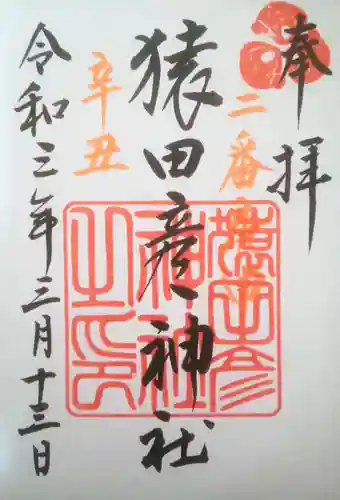 奉拝
二番霊山
猿田彦神社
辛丑
令和三年三月十三日
猿田彦神社之印